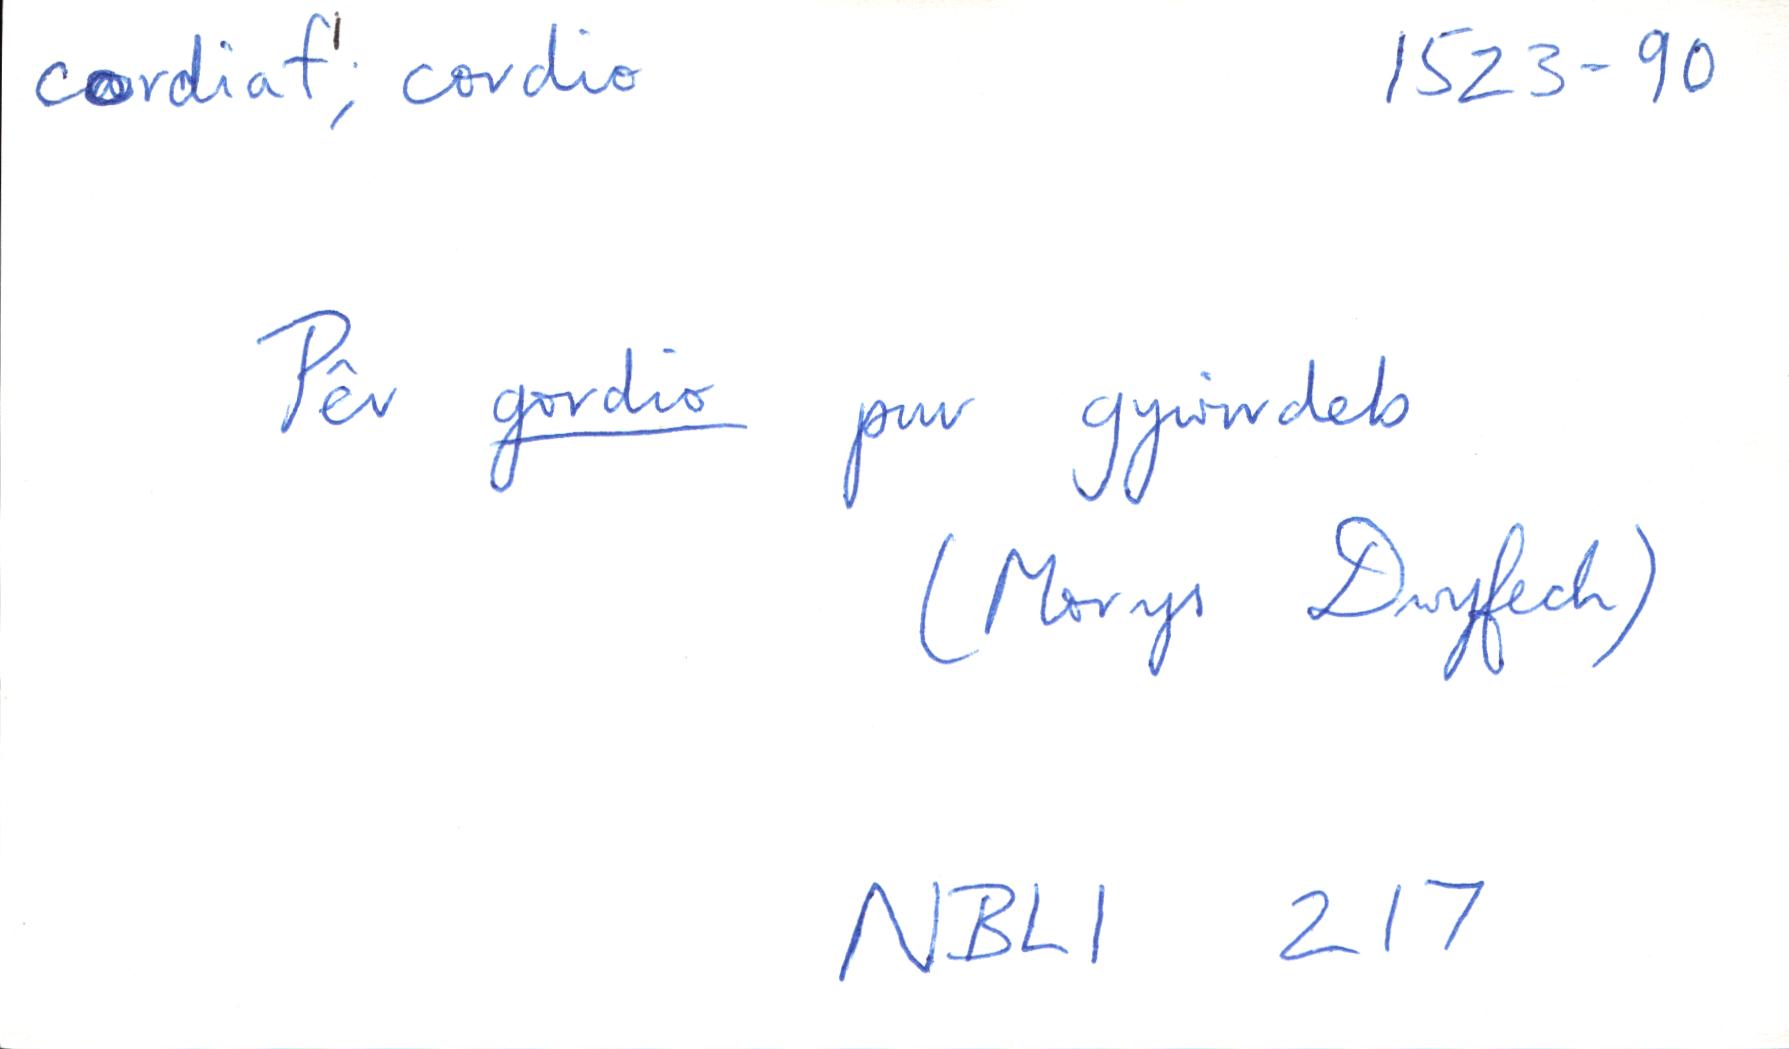 cordiaf¹; cordio 1523-90
Pêr gordio pur gywirdeb
(Morys Dwyfech)
NBLl 217